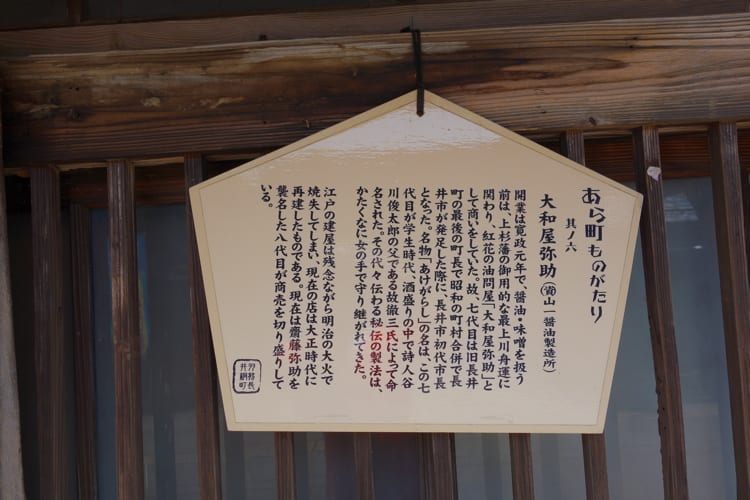 あら町ものがたり
其ノ六
大和屋弥助(資山一醤油製造所)
開業は寛政元年で、醤油・味噌を扱う
前は、上杉藩の御用的な最上川舟運に
関わり、紅花の油問屋「大和屋弥助」と
して商いをしていた。故、七代目は旧長井
町の最後の町長で昭和の町村合併で長
井市が発足した際に、長井市初代市長
となった。名物「あけがらし」の名は、この七
代目が学生時代、酒盛りの中で詩人谷
川俊太郎の父である故徹三氏によって命
名された。その代々伝わる秘伝の製法は、
かたくなに女の手で守り継がれてきた。
江戸の建屋は残念ながら明治の大火で
焼失してしまい、現在の店は大正時代に
再建したものである。現在は齋藤弥助を
襲名した八代目が商売を切り盛りして
いる。